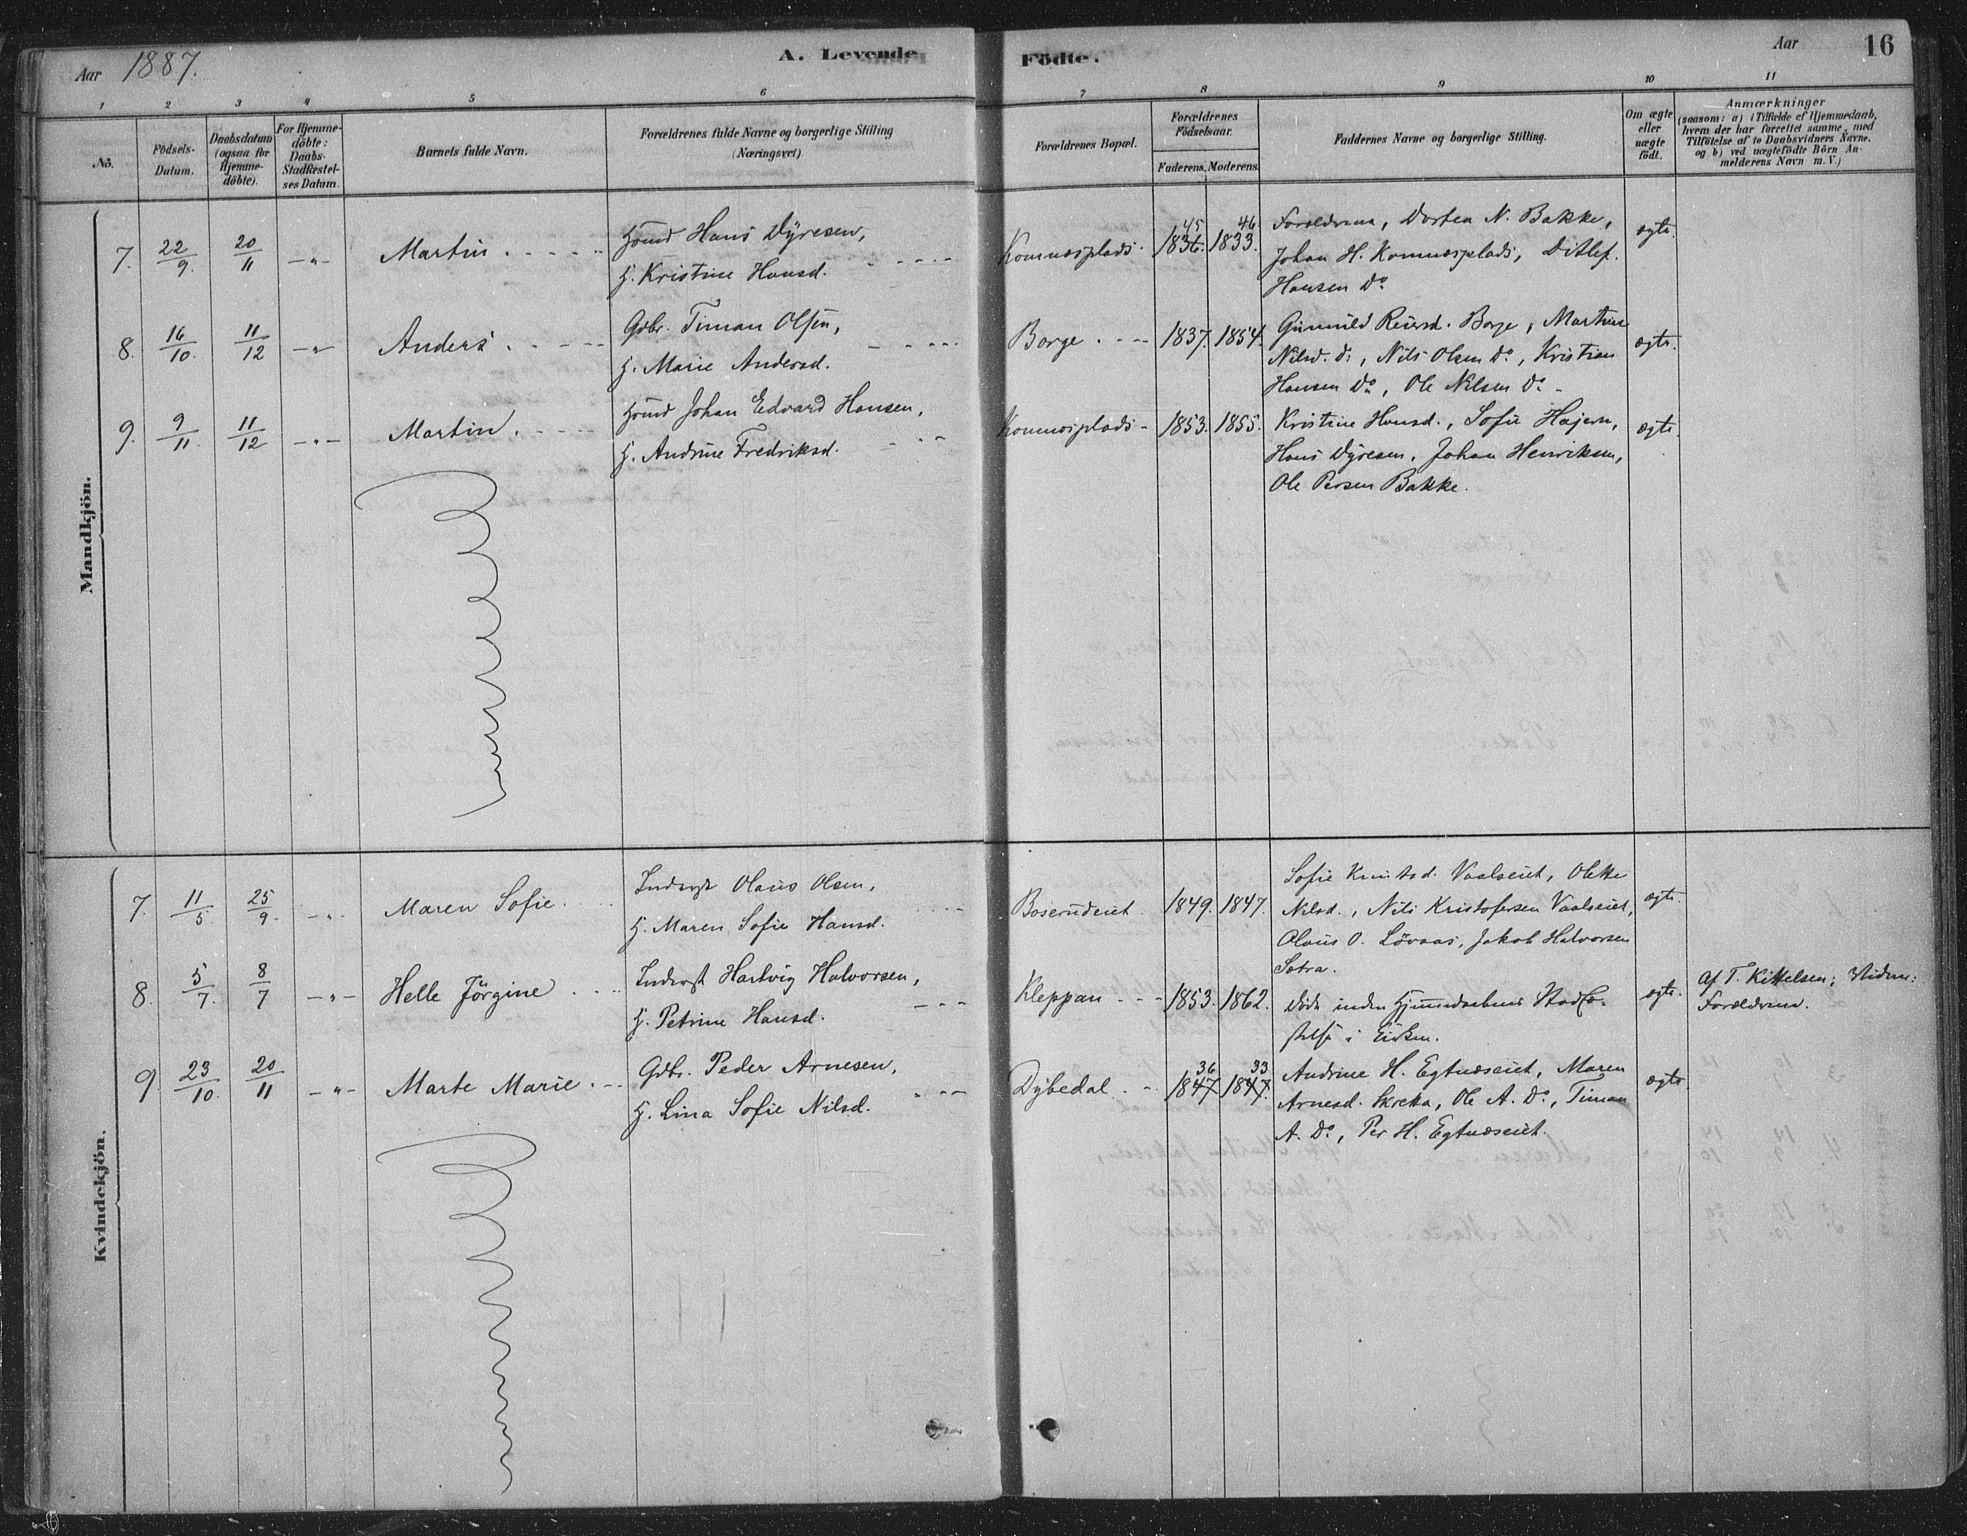 Aar 1887.
A. Levende
Födte.
Aar
16
1 2 3 4 5 6 7 8 9 10 11
Nò.
Födsels-
Datum.
Daabsdatum
(ogsaa for
Hjemme-
döbte).
For Hjemme-
döbte:
Daabs-
Stadfæstel-
ses Datum.
Barnets fulde Navn.
Forældrenes fulde Navne og borgerlige Stilling
(Næringsvei)
Forældrenes Bopæl.
Forældrenes
Födselsaar.
Faderens. Moderens.
Faddernes Navne og borgerlige Stilling.
Om ægte
eller
uægte
födt.
Anmærkninger
(saasom: a) i Tilfælde af Hjemmedaab,
hvem der har forrettet samme, med
Tilföielse af to Daabsvidners Navne.
og b) ved uægtefödte Börn An-
melderens Navn m. V.)
Mandkjön.
7. 22/9. 20/11 -"- Martin.
Hans Dyresen,
H. Kristine Hansd.
Komnæsplads.
45 46
1836. 1833.
Forældrene, Dortea N. Bakke,
Johan H. Komnæsplads, Ditlef
Hansen Do
ægte.
8. 16/10. 11/12 -"- Anders.
Gdbr. Timan Olsen,
H. Marie Andersd.
Borge. 1837. 1854.
Gunnild Reiersd. Borge, Martine
Nilsd. Do, Nils Olsen Do, Kristian
Hansen Do, Ole Nilsen Do.
ægte.
9. 9/11. 11/12 -"- Martin.
Johan Edvard Hansen,
H. Andrine Fredriksd.
Komnæsplads 1853. 1855.
Kristine Hansd., Sofie Hajern,
Hans Dyresen, Johan Henriksen,
Ole Persen Bakke.
ægte.
Kvindekjön.
7. 11/5. 25/9 -"- Maren Sofie.
Inderst Olaus Olsen,
H. Maren Sofie Hansd.
Boserudeiet. 1849. 1847.
Sofie Knutsd. Vaalseiet, Olette
Nilsd., Nils Kristofersen Vaalseiet,
Olaus O. Lövaas, Jakob Halvorsen
Sätra.
ægte.
8. 5/7. 8/7 -"- Helle Jörgine
Inderst Hartvig Halvorsen,
H. Petrine Hansd.
Kleppan 1853. 1862.
Död inden Hjemmedaabens Stadfæ-
stelse i Kirken.
ægte.
Af T. Kittelsen; Vidner:
Forældrene.
9. 23/10. 20/11 -"- Marte Marie.
Gdbr. Peder Arnesen,
H. Lina Sofie Nilsd.
Dybedal.
36 33
1847 1847.
Andrine H. Egtnæseiet, Maren
Arnesd. Skretta, Ole A. Do, Timan
A. Do, Per H. Egtnæseiet.
ægte